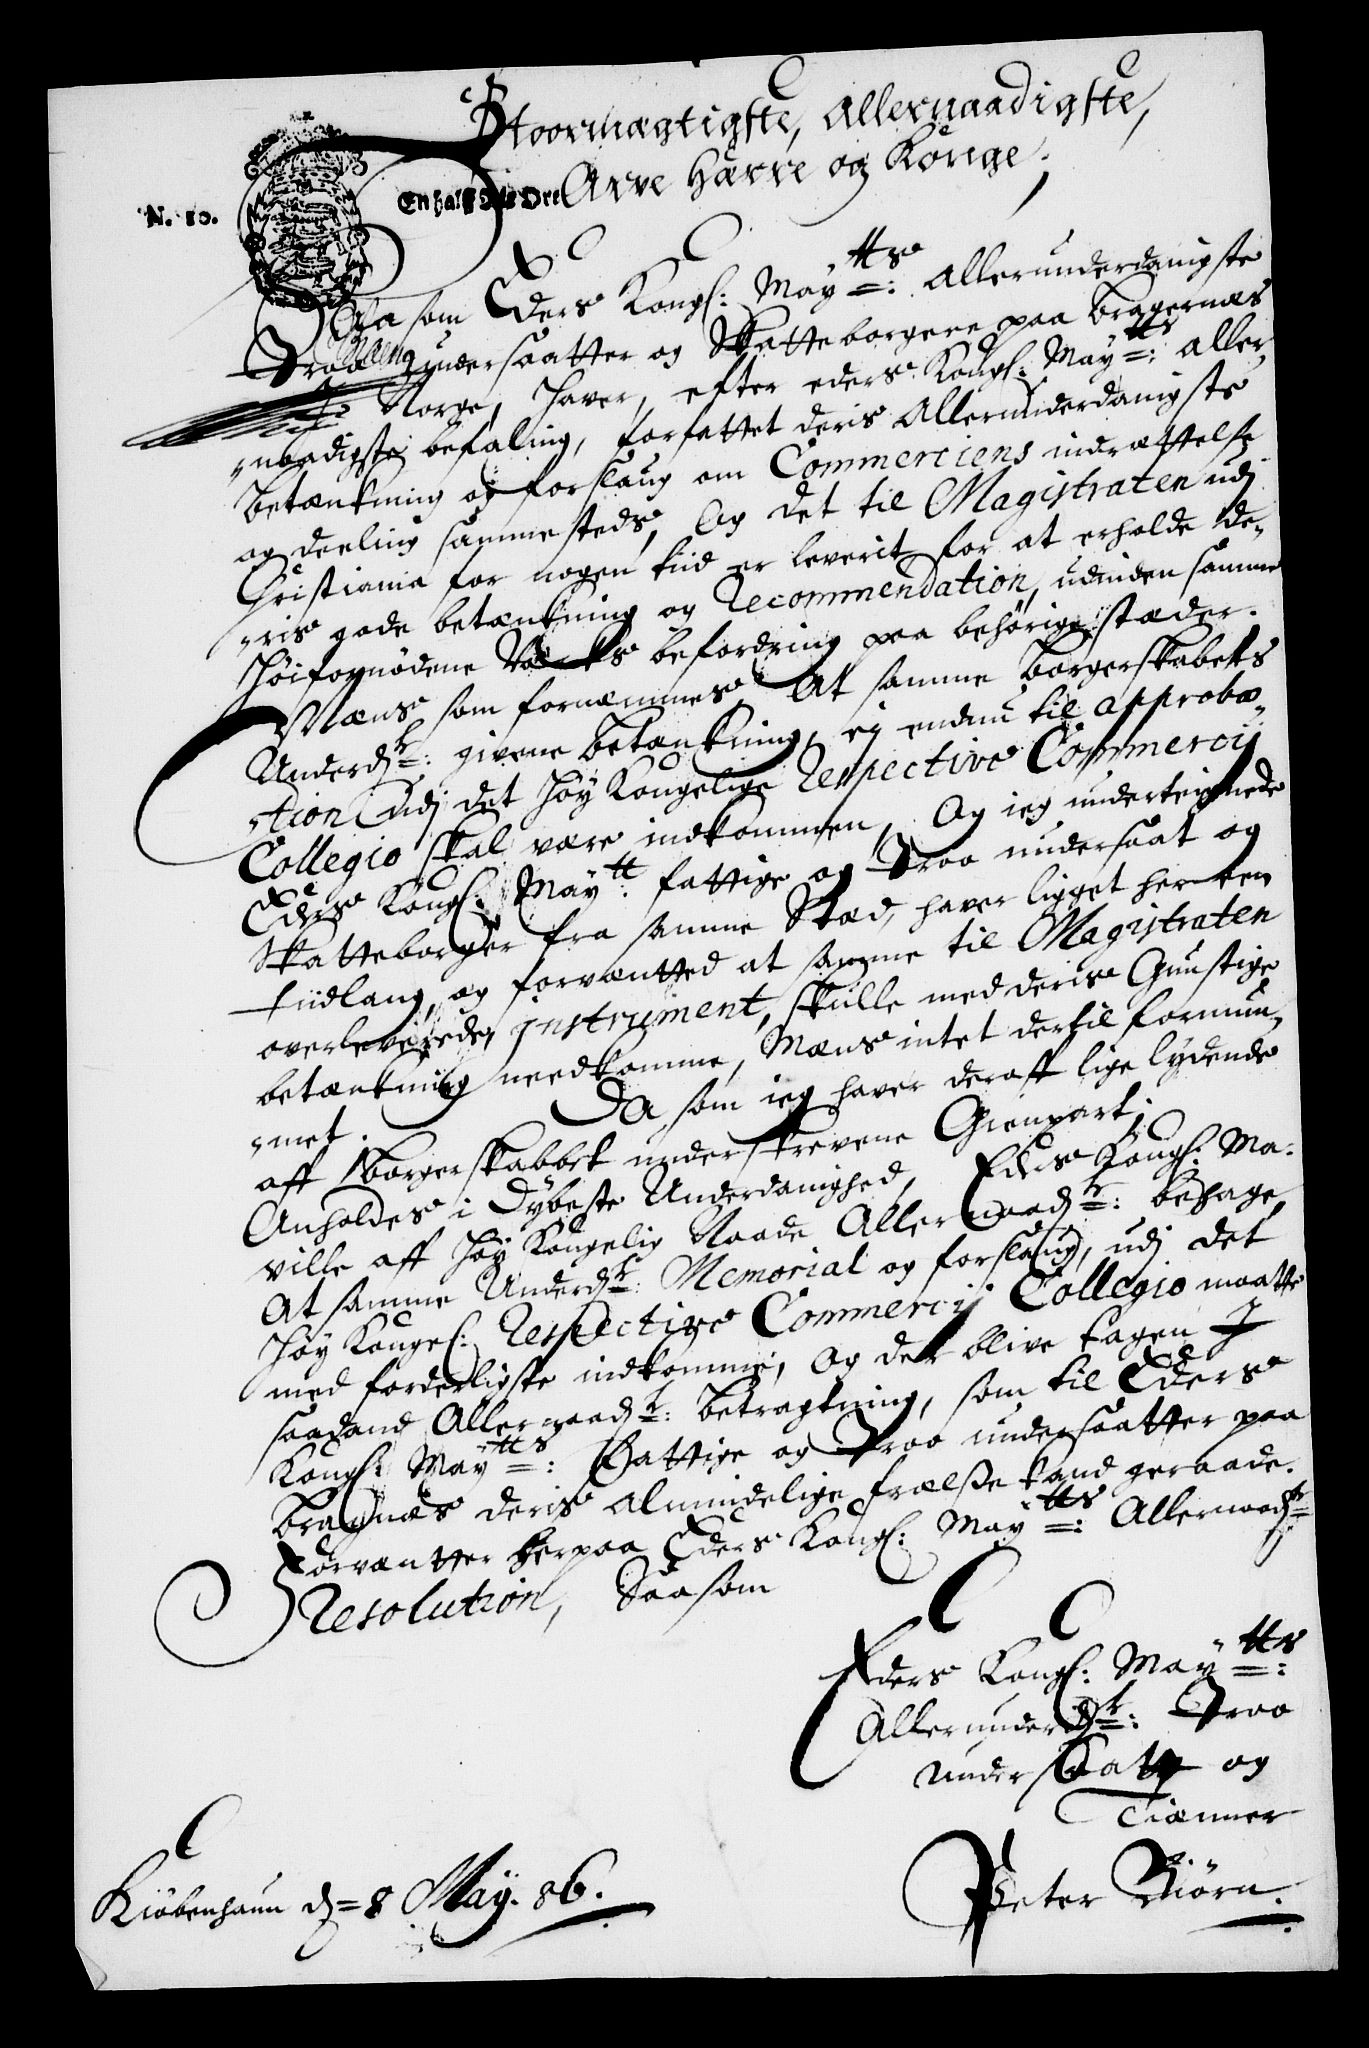 Stoormægtigste, Allernaadigste,
N. 80.
En half Dlr Ort
Arve Hærre og Konge;
Saasom Eders Kongl: May:tts Allerunderdanigste
Troe undersaatter og Skatteborgere paa Bragernæs
J Norge, hafver, efter eders Kongl: May:tts aller,
„naadigste befaling, forfattet deris Allerunderdanigste
betænkning og forslaug om Commerciens indrættelse
og deeling sammesteds, Og det til Magistraten udj
Christiania for nogen tiid er leverit for at erholde de„
„ris gode betænkning og Recommendation, udinden samme
Høifornødene Værks befordring paa behørige stæder.
Mæns som fornemmes, At samme Borgerskabets
Underd:k: givene betænkning, ej endnu til approba„
„tion udj det Høy Kongelige Respective Commercij
Collegio skal være indkommen, Og ieg underteignede
Eders Kongl: May:tt fattige og Troe undersaat og
Skatteborger fra samme Stæd, haver ligget her een
tiidlang, og forventted at samme til Magistraten
overleverede, instrument, skulle med deris Gunstige
betænkning needkomme, Mæns intet dertil fornum„
„met. Da som ieg haver deraff lige lydende
aff Borgerskabbet underskrevene Gienpart;
Anholdes i Dybeste Underdanighed, Eders Kongl: Ma:
ville aff Høy Kongelig Naade Allernaad:k: behage,
At samme Underd:k: Memorial og forslaug, udj det
Høy Kongel: Respective Commercij Collegio maatte
med forderligste indkomme, Og der blive tagen J
saadand Allernaad:k: betragtning, som til Eders
Kongl: May:tts: Fattige og Troe undersaatter paa
Bragnæs deris almindelige frælse kand geraade.
Forventter herpaa Eders Kongl: May:tts: Allernaad:k
Resolution, Saasom
Eders Kongl: May:tts:
Allerunderd:k: Troe
undersaat og
Tienner
Peter Biörn.
Kiöbenhaun d= 8 Maÿ. 86.